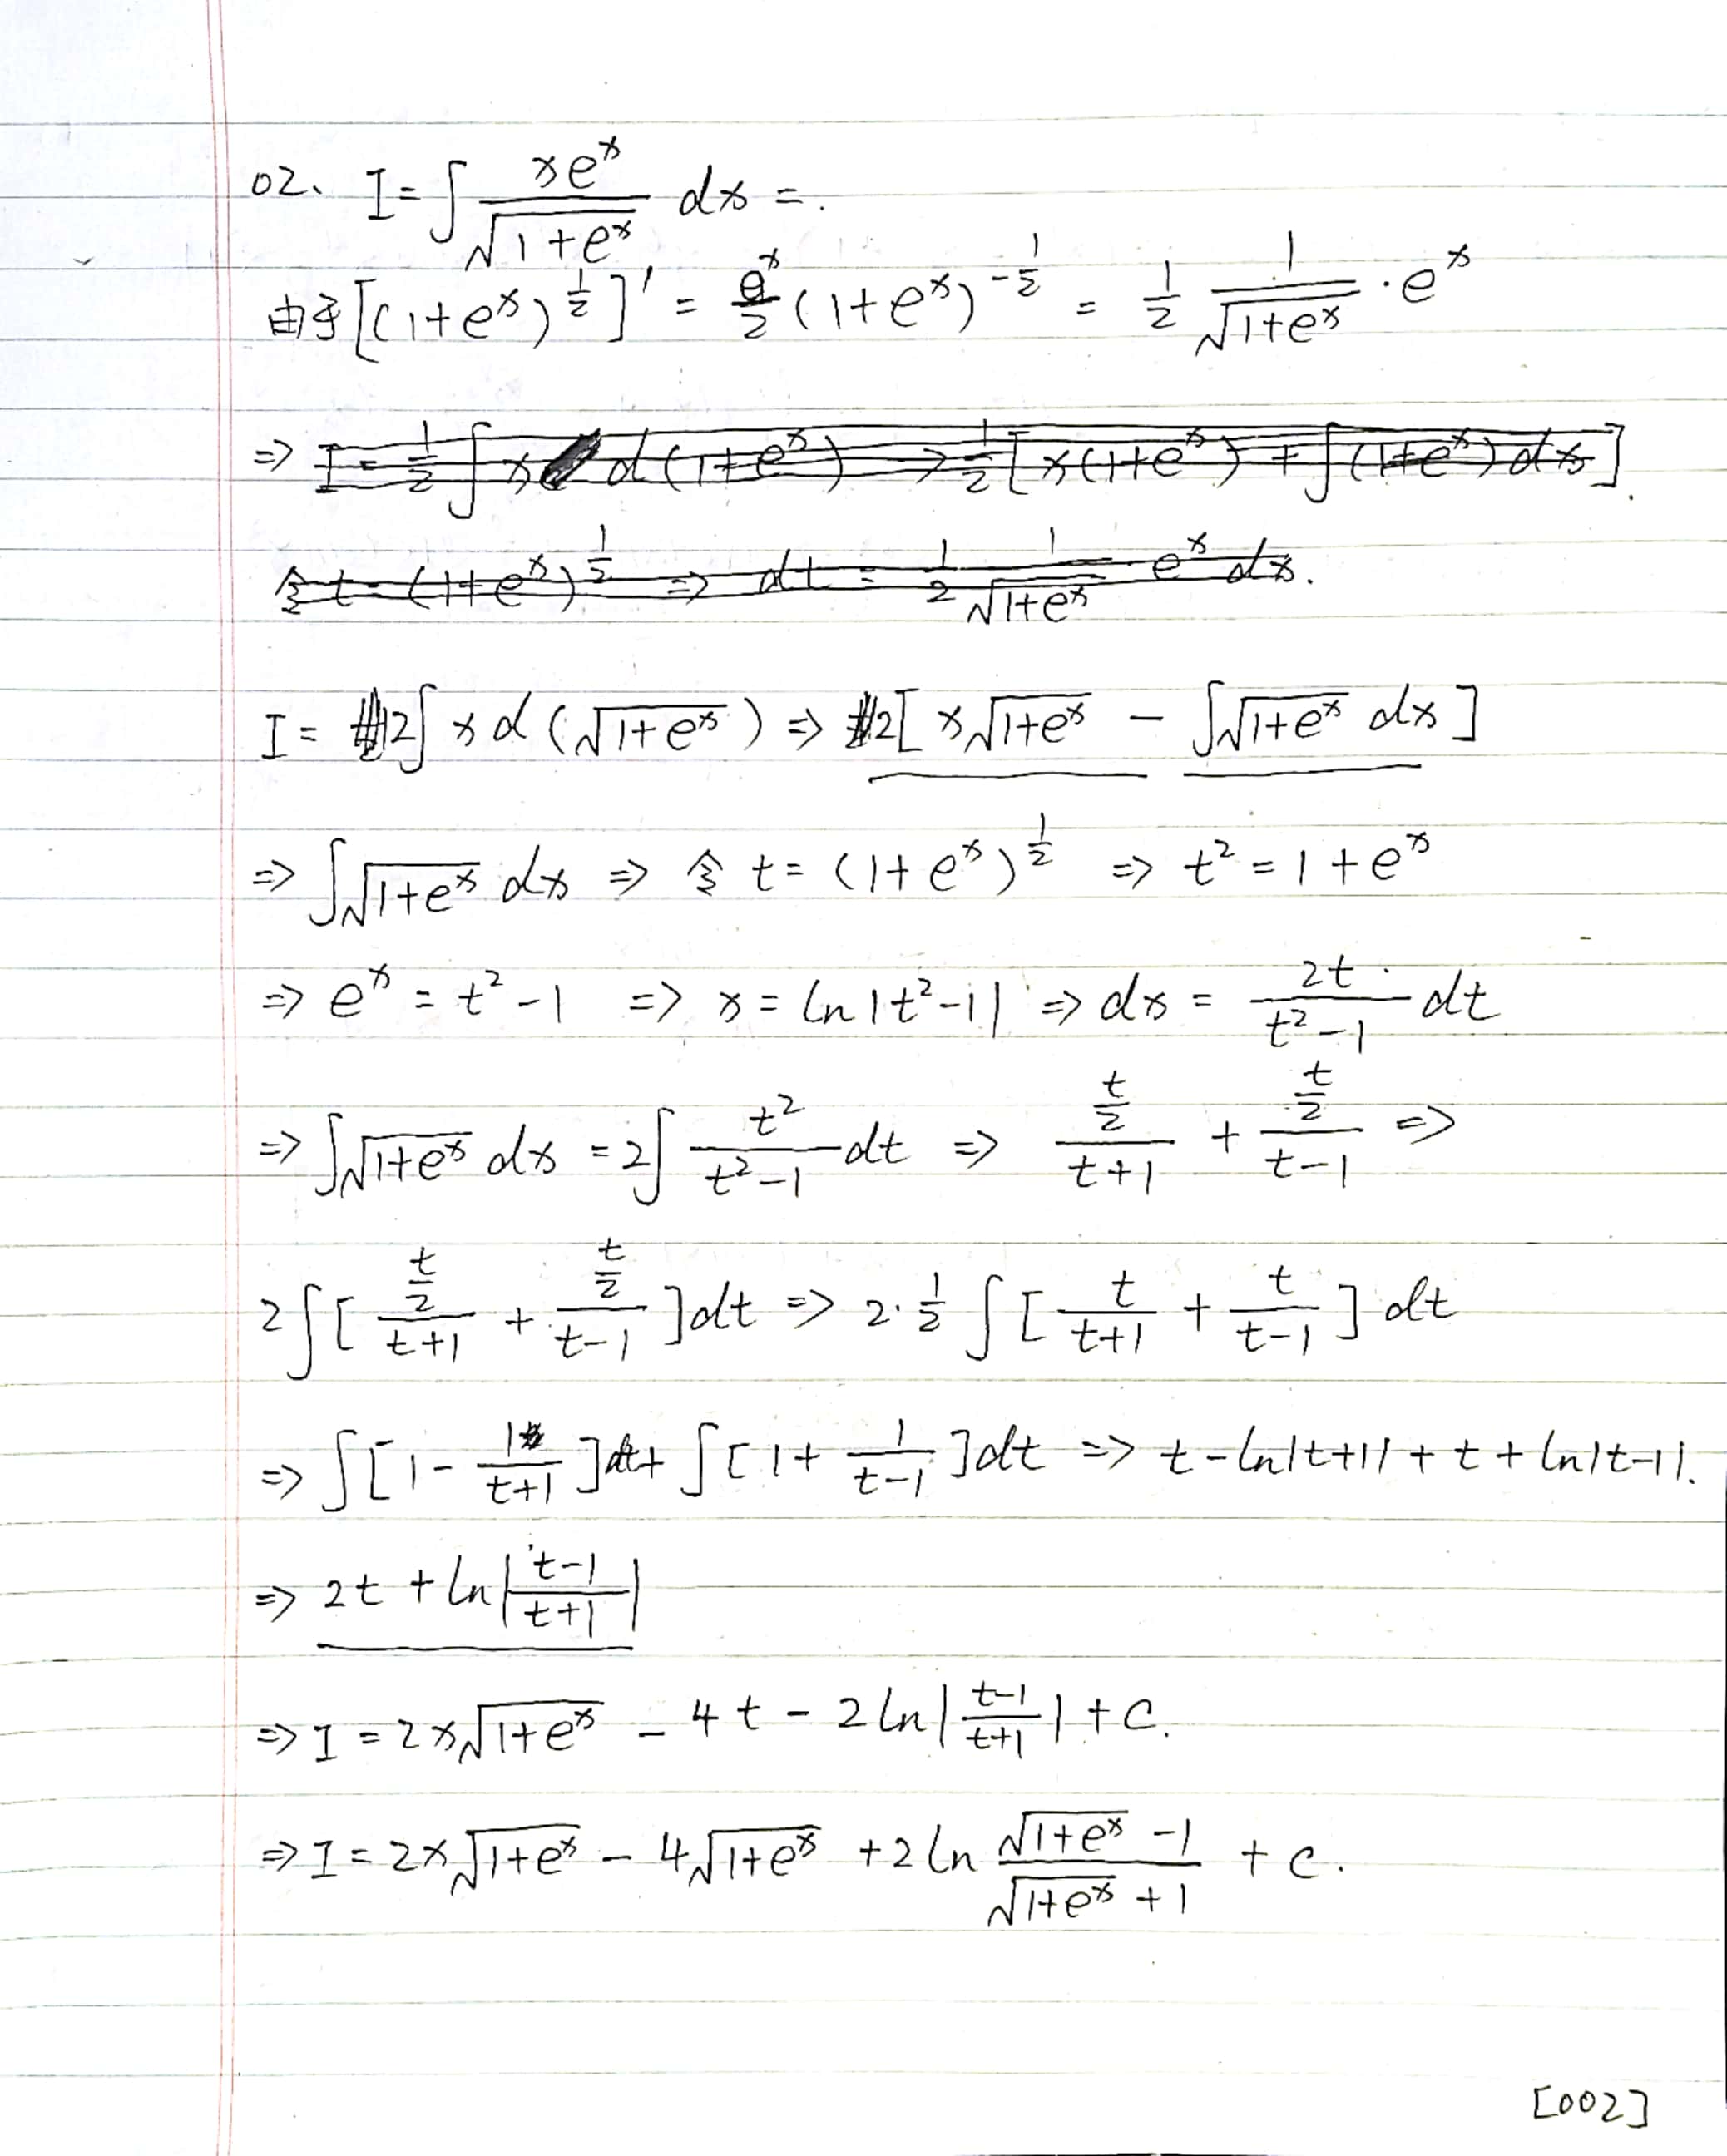 02、 I = ∫ \frac{xe^x}{\sqrt{1+e^x}} dx =.
由于 [(1+e^x)^{\frac{1}{2}}]' = \frac{e^x}{2} (1+e^x)^{-\frac{1}{2}} = \frac{1}{2} \frac{1}{\sqrt{1+e^x}} · e^x
⇒ I = \frac{1}{2} ∫ x d(1+e^x) ⇒ \frac{1}{2} [x(1+e^x) + ∫(1+e^x)dx].
令 t = (1+e^x)^{\frac{1}{2}} ⇒ dt = \frac{1}{2} \frac{1}{\sqrt{1+e^x}} e^x dx.
I = 2∫ x d(\sqrt{1+e^x}) ⇒ 2[x\sqrt{1+e^x} - ∫\sqrt{1+e^x} dx]
⇒ ∫\sqrt{1+e^x} dx ⇒ 令 t = (1+e^x)^{\frac{1}{2}} ⇒ t^2 = 1+e^x
⇒ e^x = t^2 - 1 ⇒ x = ln|t^2-1| ⇒ dx = \frac{2t}{t^2-1} dt
⇒ ∫\sqrt{1+e^x} dx = 2∫ \frac{t^2}{t^2-1} dt ⇒ \frac{\frac{t}{2}}{t+1} + \frac{\frac{t}{2}}{t-1} ⇒
2∫[\frac{\frac{t}{2}}{t+1} + \frac{\frac{t}{2}}{t-1}]dt ⇒ 2·\frac{1}{2} ∫[\frac{t}{t+1} + \frac{t}{t-1}]dt
⇒ ∫[1 - \frac{1}{t+1}]dt + ∫[1 + \frac{1}{t-1}]dt ⇒ t - ln|t+1| + t + ln|t-1|.
⇒ 2t + ln|\frac{t-1}{t+1}|
⇒ I = 2x\sqrt{1+e^x} - 4t - 2ln|\frac{t-1}{t+1}| + c.
⇒ I = 2x\sqrt{1+e^x} - 4\sqrt{1+e^x} + 2ln \frac{\sqrt{1+e^x} - 1}{\sqrt{1+e^x} + 1} + c.
[002]